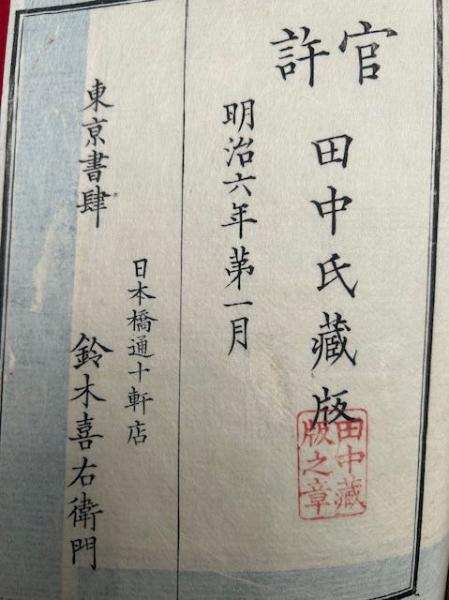 官許
田中氏藏版
田中藏版之章
明治六年第一月
東京書肆
日本橋通十軒店
鈴木喜右衛門